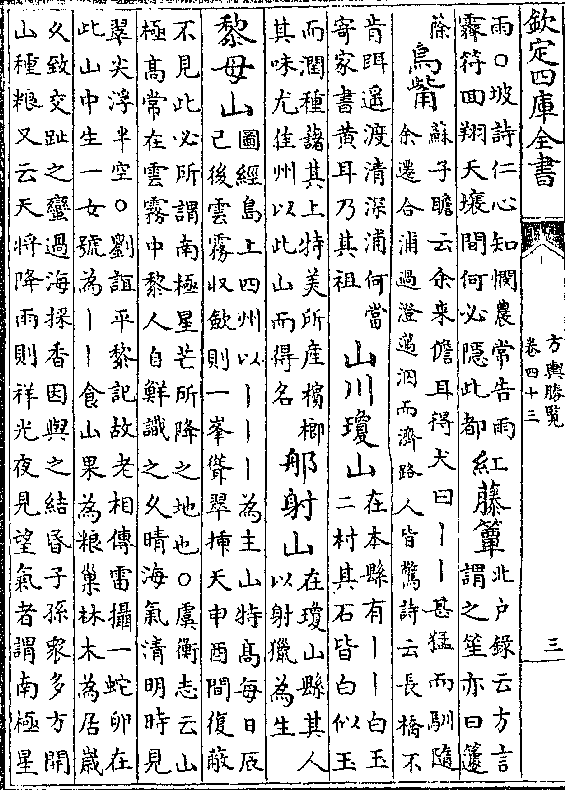 欽定四庫全書
方輿勝覽
卷四十三
三
雨〇坡詩仁心知憫農常告雨
霽符回翔天壤間何必隱此都
紅藤簟
北户錄云方言
謂之笙亦曰籧
蒢
烏觜
蘇子瞻云余來儋耳得犬曰丨丨甚猛而馴隨
余遷合浦過澄邁泅而濟路人皆驚詩云長橋不
肯遥渡清深浦何當
寄家書黄耳乃其祖
山川瓊山
在本縣有丨丨白玉
二村其石皆白似玉
而潤種藷其上特美所産檳榔
其味尤佳州以此山而得名
郍射山
在瓊山縣其人
以射獵為生
黎母山
圖經島上四州以丨丨丨為主山特髙每日辰
已後雲霧收歛則一峯聳翠揷天申酉間復蔽
不見此必所謂南極星芒所降之地也〇虞衡志云山
極髙常在雲霧中黎人自鮮識之久晴海氣清明時見
翠尖浮半空〇劉誼平黎記故老相傳雷攝一蛇卵在
此山中生一女號為丨丨食山果為粮巢林木為居嵗
久致交趾之蠻過海採香因與之結昏子孫衆多方開
山種粮又云天將降雨則祥光夜見望氣者謂南極星